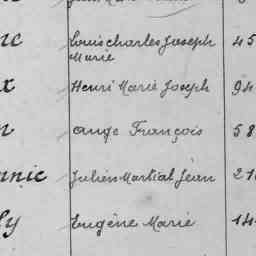 Louis charles Joseph 45
Marie
Henri Marie Joseph 94
ange François 58
Julien Martial Jean 21
Eugène Marie 14